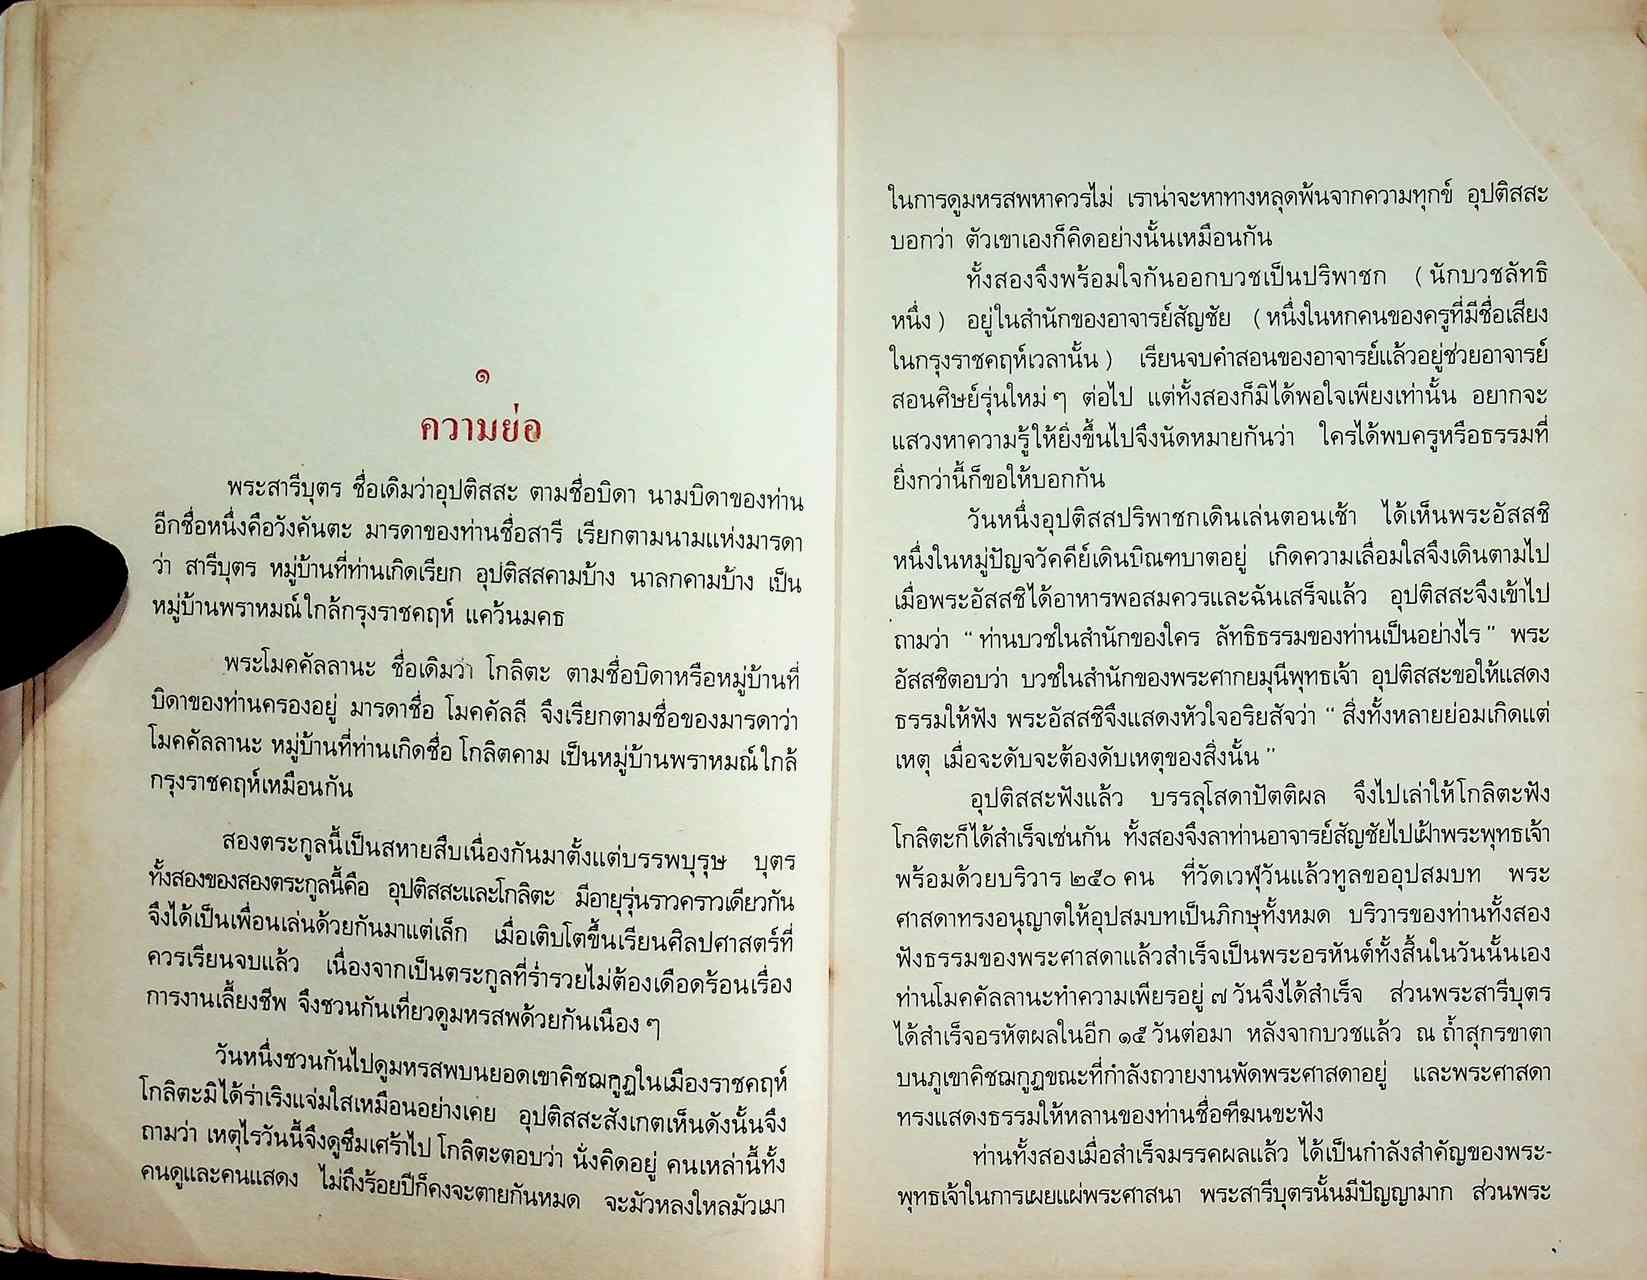 ๑
ความย่อ
พระสารีบุตร ชื่อเดิมว่าอุปติสสะ ตามชื่อบิดา นามบิดาของท่าน
อีกชื่อหนึ่งคือวังคันตะ มารดาของท่านชื่อสารี เรียกตามนามแห่งมารดา
ว่า สารีบุตร หมู่บ้านที่ท่านเกิดเรียก อุปติสสคามบ้าง นาลกคามบ้าง เป็น
หมู่บ้านพราหมณ์ใกล้กรุงราชคฤห์ แคว้นมคธ
พระโมคคัลลานะ ชื่อเดิมว่า โกลิตะ ตามชื่อบิดาหรือหมู่บ้านที่
บิดาของท่านครองอยู่ มารดาชื่อ โมคคัลลี จึงเรียกตามชื่อของมารดาว่า
โมคคัลลานะ หมู่บ้านที่ท่านเกิดชื่อ โกลิตคาม เป็นหมู่บ้านพราหมณ์ใกล้
กรุงราชคฤห์เหมือนกัน
สองตระกูลนี้เป็นสหายสืบเนื่องกันมาตั้งแต่บรรพบุรุษ บุตร
ทั้งสองของสองตระกูลนี้คือ อุปติสสะและโกลิตะ มีอายุรุ่นราวคราวเดียวกัน
จึงได้เป็นเพื่อนเล่นด้วยกันมาแต่เล็ก เมื่อเติบโตขึ้นเรียนศิลปศาสตร์ที่
ควรเรียนจบแล้ว เนื่องจากเป็นตระกูลที่ร่ำรวยไม่ต้องเดือดร้อนเรื่อง
การงานเลี้ยงชีพ จึงชวนกันเที่ยวดูมหรสพด้วยกันเนือง ๆ
วันหนึ่งชวนกันไปดูมหรสพบนยอดเขาคิชฌกูฏในเมืองราชคฤห์
โกลิตะมิได้ร่าเริงแจ่มใสเหมือนอย่างเคย อุปติสสะสังเกตเห็นดังนั้นจึง
ถามว่า เหตุไรวันนี้จึงดูซึมเศร้าไป โกลิตะตอบว่า นั่งคิดอยู่ คนเหล่านี้ทั้ง
คนดูและคนแสดง ไม่ถึงร้อยปีก็คงจะตายกันหมด จะมัวหลงใหลมัวเมา
ในการดูมหรสพหาควรไม่ เราน่าจะหาทางหลุดพ้นจากความทุกข์ อุปติสสะ
บอกว่า ตัวเขาเองก็คิดอย่างนั้นเหมือนกัน
ทั้งสองจึงพร้อมใจกันออกบวชเป็นปริพาชก (นักบวชลัทธิ
หนึ่ง) อยู่ในสำนักของอาจารย์สัญชัย (หนึ่งในหกคนของครูที่มีชื่อเสียง
ในกรุงราชคฤห์เวลานั้น) เรียนจบคำสอนของอาจารย์แล้วอยู่ช่วยอาจารย์
สอนศิษย์รุ่นใหม่ ๆ ต่อไป แต่ทั้งสองก็มิได้พอใจเพียงเท่านั้น อยากจะ
แสวงหาความรู้ให้ยิ่งขึ้นไปจึงนัดหมายกันว่า ใครได้พบครูหรือธรรมที่
ยิ่งกว่านี้ก็ขอให้บอกกัน
วันหนึ่งอุปติสสปริพาชกเดินเล่นตอนเช้า ได้เห็นพระอัสสชิ
หนึ่งในหมู่ปัญจวัคคีย์เดินบิณฑบาตอยู่ เกิดความเลื่อมใสจึงเดินตามไป
เมื่อพระอัสสชิได้อาหารพอสมควรและฉันเสร็จแล้ว อุปติสสะจึงเข้าไป
ถามว่า “ท่านบวชในสำนักของใคร ลัทธิธรรมของท่านเป็นอย่างไร” พระ
อัสสชิตอบว่า บวชในสำนักของพระศากยมุนีพุทธเจ้า อุปติสสะขอให้แสดง
ธรรมให้ฟัง พระอัสสชิจึงแสดงหัวใจอริยสัจว่า “สิ่งทั้งหลายย่อมเกิดแต่
เหตุ เมื่อจะดับจะต้องดับเหตุของสิ่งนั้น”
อุปติสสะฟังแล้ว บรรลุโสดาปัตติผล จึงไปเล่าให้โกลิตะฟัง
โกลิตะก็ได้สำเร็จเช่นกัน ทั้งสองจึงลาท่านอาจารย์สัญชัยไปเฝ้าพระพุทธเจ้า
พร้อมด้วยบริวาร ๒๕๐ คน ที่วัดเวฬุวันแล้วทูลขออุปสมบท พระ
ศาสดาทรงอนุญาตให้อุปสมบทเป็นภิกษุทั้งหมด บริวารของท่านทั้งสอง
ฟังธรรมของพระศาสดาแล้วสำเร็จเป็นพระอรหันต์ทั้งสิ้นในวันนั้นเอง
ท่านโมคคัลลานะทำความเพียรอยู่ ๗ วันจึงได้สำเร็จ ส่วนพระสารีบุตร
ได้สำเร็จอรหัตผลในอีก ๑๕ วันต่อมา หลังจากบวชแล้ว ณ ถ้ำสุกรขาตา
บนภูเขาคิชฌกูฏขณะที่กำลังถวายงานพัดพระศาสดาอยู่ และพระศาสดา
ทรงแสดงธรรมให้หลานของท่านชื่อฑีฆนขะฟัง
ท่านทั้งสองเมื่อสำเร็จมรรคผลแล้ว ได้เป็นกำลังสำคัญของพระ-
พุทธเจ้าในการเผยแผ่พระศาสนา พระสารีบุตรนั้นมีปัญญามาก ส่วนพระ